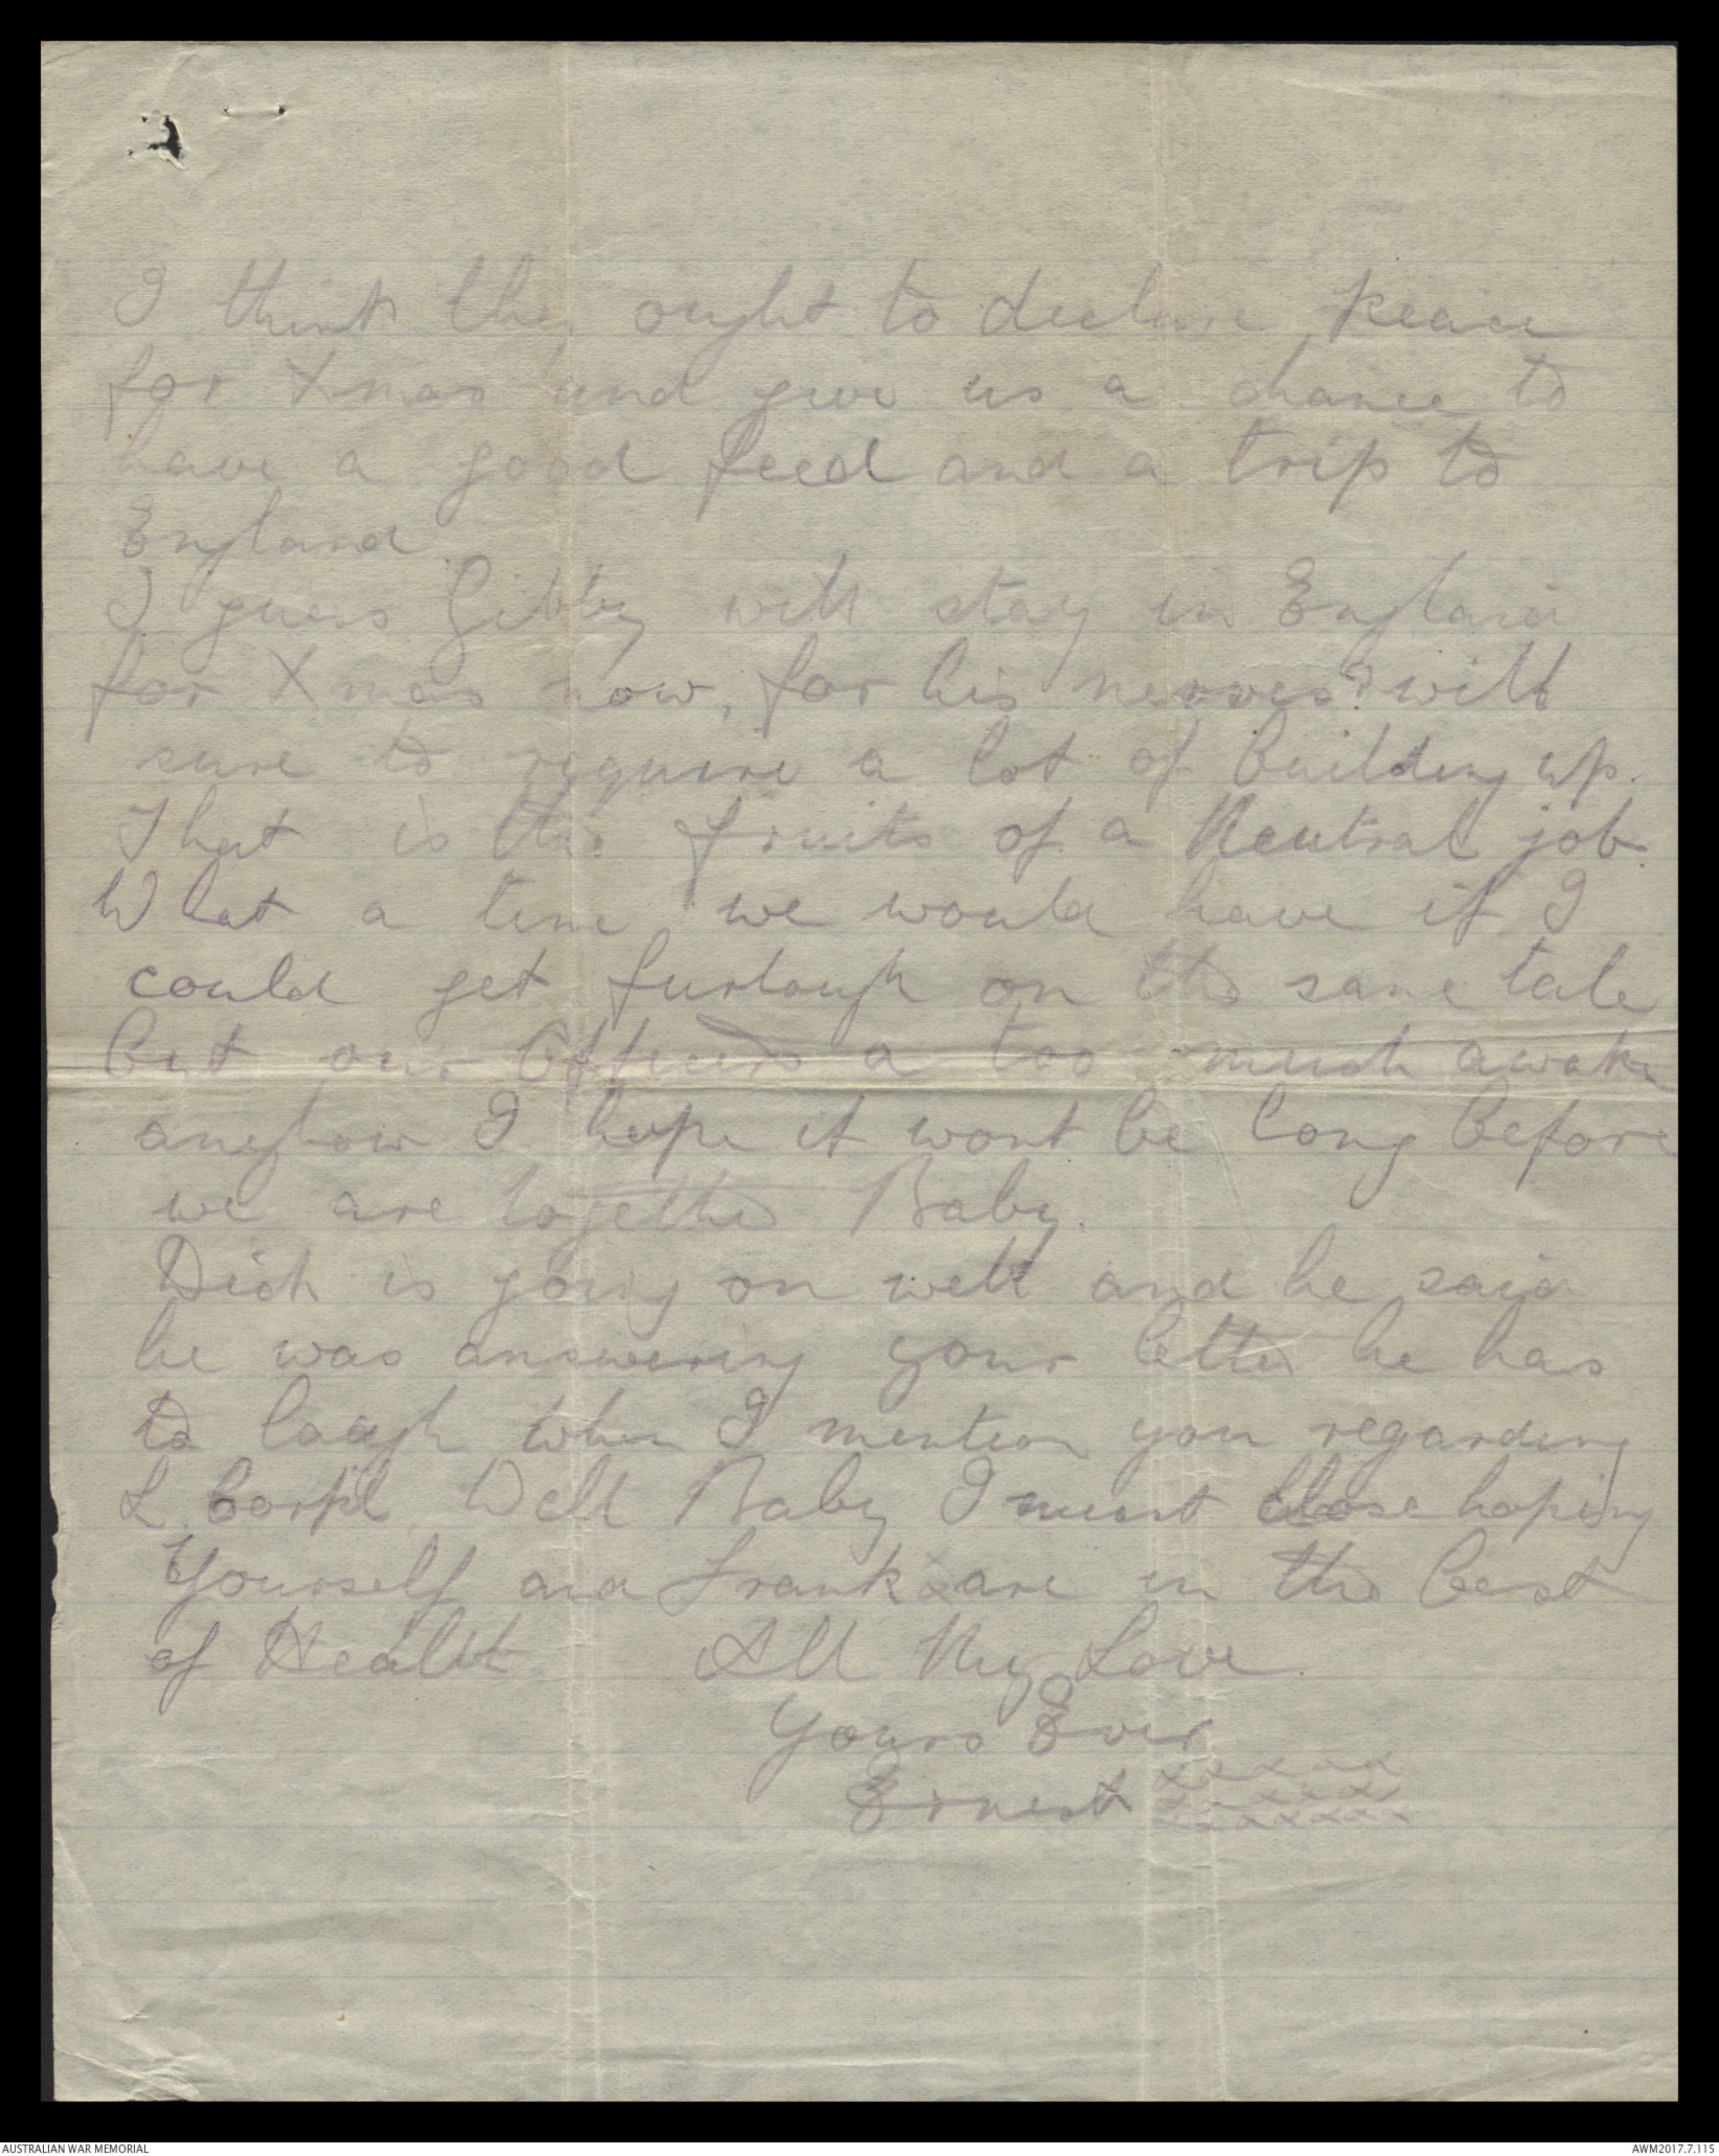 I think they ought to declare peace
for Xmas and give us a chance to
have a good feed and a trip to
England.
I guess Gibby will stay in England
for Xmas now, for his nerves? will
sure to require a lot of building up.
That is the fruits of a Neutral job.
What a time we would have if I
could get furlough on the same tale
but our Officers a too much awake
anyhow I hope it wont be long before
we are together Baby.
Dick is going on well and he said
he was answering your letter he has
to laugh when I mention you regarding
L. Corpl. Well Baby I must close hoping
Yourself and Frank are in the best
of Health All My Love
Yours Ever
Ernest xxxxxx
xxxxxx
xxxxxx
AUSTRALIAN WAR MEMORIAL
AWM2017.7.115